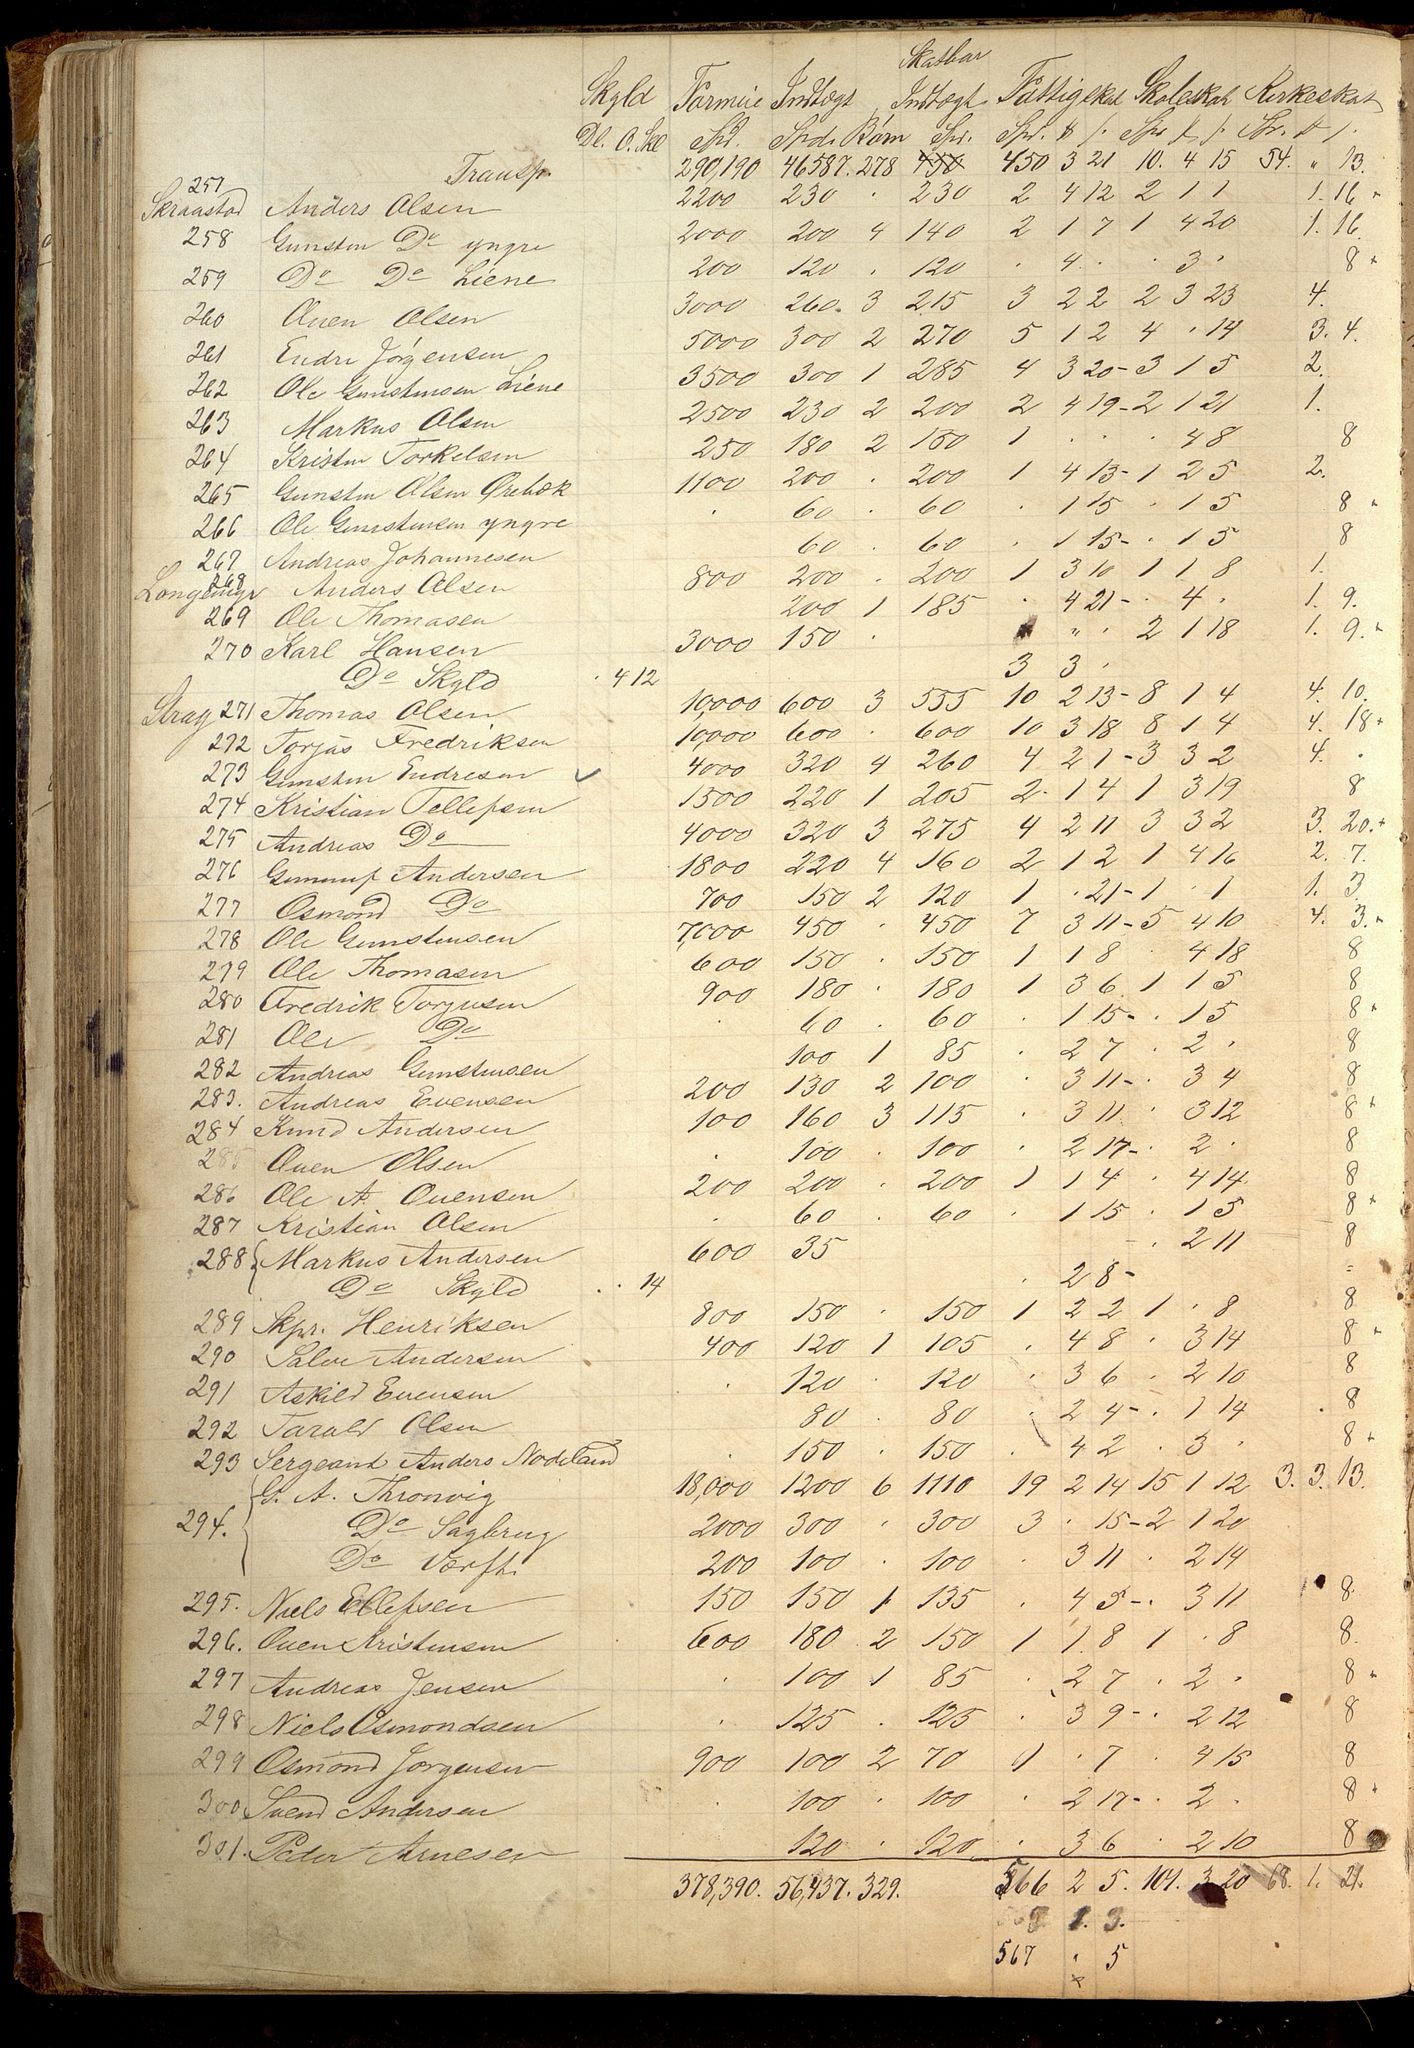 Skatbar
Skyld Formue Indtægt Indtægt Fattigskat Skoleskat Kirkeskat
Dl. O. Skl Spd. Spd. Børn Spd. Spd. # ß. Spd # ß. Spd. # ß.
Transp. 290,190 46587. 278 450 450 3 21 10. 4 15 54. " 13.
257 Skraastad Anders Olsen 2200 230 . 230 2 4 12 2 1 1 1. 16 "
258 Gunsten Do yngre 2000 200 4 140 2 1 7 1 4 20 1. 16.
259 Do Do Liene 200 120 . 120 . 4 . . 3 . 8 +
260 Ouen Olsen 3000 260. 3 215 3 2 2 2 3 23 4.
261 Endre Jørgensen 5000 300 2 270 5 1 2 4 . 14 3. 4.
262 Ole Gunstensen Liene 3500 300 1 285 4 3 20 - 3 1 5 2.
263 Markus Olsen 2500 230 2 200 2 4 19 - 2 1 21 1.
264 Kristen Torkelsen 250 180 2 150 1 . . . 4 8 8
265 Gunsten Olsen Ørebæk 1100 200 . 200 1 4 13 - 1 2 5 2.
266 Ole Gunstensen yngre . 60 . 60 . 1 15 . 1 5 8 +
267 Andreas Johannesen 60 . 60 . 1 15 - . 1 5 8
268 Anders Olsen 800 200 . 200 1 3 10 1 1 8 1.
269 Ole Thomasen 200 1 185 . 4 21 - . 4 . 1. 9.
270 Karl Hansen 3000 150 . " . 2 1 18 1. 9. +
Do Skyld . 4 12 3 3 .
Strag 271 Thomas Olsen 10,000 600 3 555 10 2 13 - 8 1 4 4. 10.
272 Torjus Fredriksen 10,000 600 . 600 10 3 18 8 1 4 4. 18 +
273 Gunsten Endresen 4000 320 4 260 4 2 1 - 3 3 2 4. .
274 Kristian Tellefsen 1500 220 1 205 2 . 14 1 3 19 8
275 Andreas Do 4000 320 3 275 4 2 11 3 3 2 3. 20. +
276 Gunnuf Andersen 1800 220 4 160 2 1 2 1 4 16 2. 7.
277 Osmond Do 700 150 2 120 1 . 21 - 1 . 1 1. 3.
278 Ole Gunstensen 7,000 450 . 450 7 3 11 - 5 4 10 4. 3. +
279 Ole Thomasen 600 150 . 150 1 1 8 . 4 18 8
280 Fredrik Torjusen 900 180 . 180 1 3 6 1 1 5 8
281 Ole Do . 60 . 60 . 1 15 - . 1 5 8 +
282 Andreas Gunstensen 100 1 85 . 2 7 . 2 . 8
283. Andreas Evensen 200 130 2 100 . 3 11 - . 3 4 8
284 Knud Andersen 100 160 3 115 . 3 11 . 3 12 8 +
285 Ouen Olsen . 100 . 100 . 2 17 - . 2 . 8
286 Ole A. Ouensen 200 200 . 200 1 1 4 . 4 14. 8
287 Kristian Olsen . 60 . 60 . 1 15 . 1 5 8 +
288 Markus Andersen 600 35 - . 2 11 8
Do Skyld . . 14 . 2 8 - =
289 Skpr. Henriksen 800 150 . 150 1 2 2 1 . 8 8
290 Salve Andersen 400 120 1 105 . 4 8 . 3 14 8 +
291 Askild Evensen . 120 . 120 . 3 6 . 2 10 8
292 Tarald Olsen 80 . 80 . 2 4 - . 1 14 . 8
293 Sergeant Anders Nodeland . 150 . 150 . 4 2 . 3 . 8 +
G. A. Thronvig 18,000 1200 6 1110 19 2 14 15 1 12 3. 3. 13.
294. Do Sagbrug 2000 300 . 300 3 . 15 - 2 1 20
Do Værft. 200 100 . 100 . 3 11 . 2 14
295. Niels Ellefsen 150 150 1 135 . 4 5 - . 3 11 8.
296. Ouen Kristensen 600 180 . 2 150 1 1. 8 1 . 8 8.
297 Andreas Jensen . 100 1 85 . 2 7 . 2 . 8 +
298 Niels Osmondsen . 125 . 125 . 3 9 - . 2 12 8
299 Osmond Jørgensen 900 100 2 70 1 . 7 . 4 15 8
300 Svend Andersen . 100 . 100 . 2 17 - . 2 . 8 +
301. Peder Arnesen 120 . 120 . 3 6 . 2 10 8
378,390. 56,437. 329. 566 2 5. 101. 3 20 68. 1. 21.
1. 3.
567 . 5